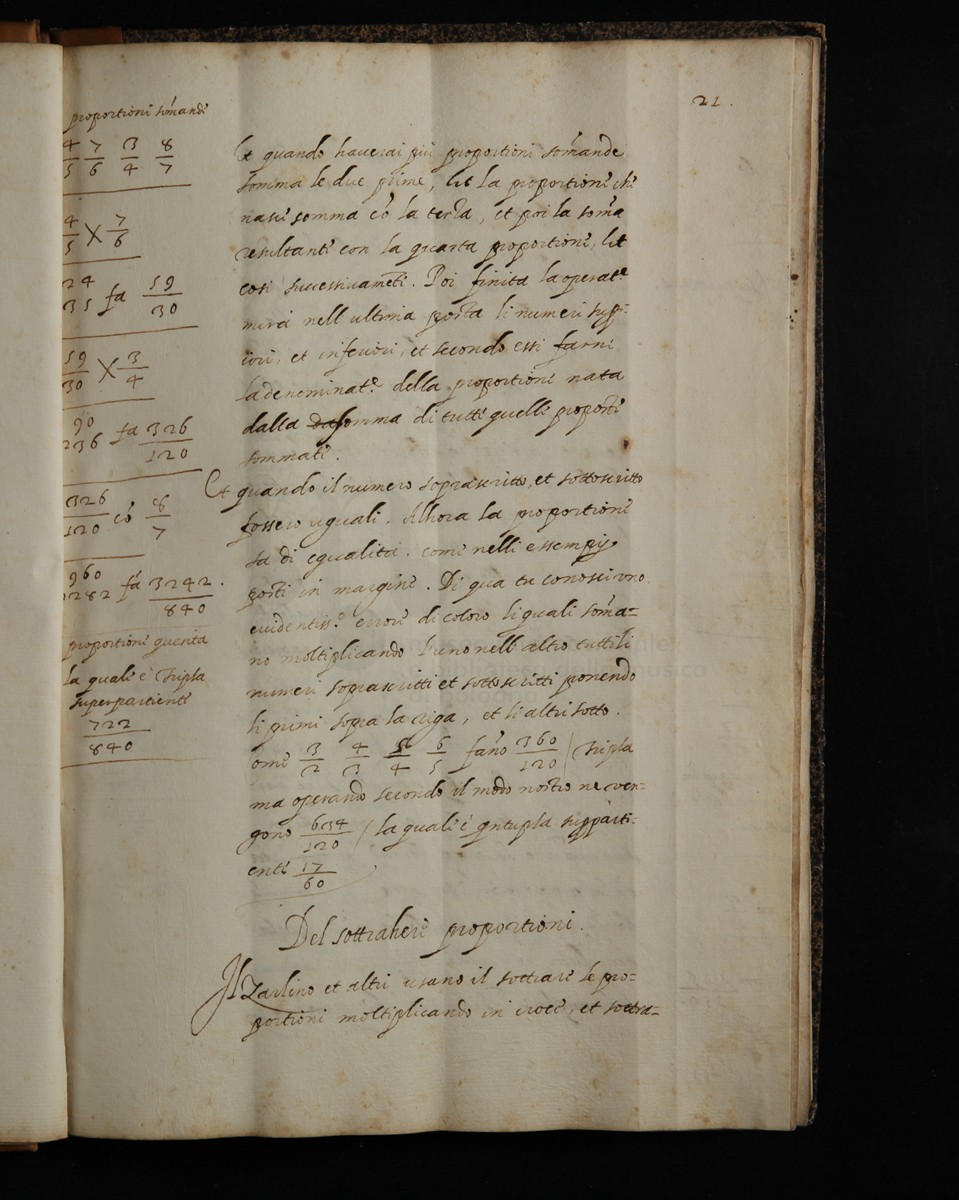 21.
proportioni somandi
4/5 7/6 3/4 8/7
4/5 X 7/6
24
35 fa 59/30
59/30 X 3/4
90
236 fa 326/120
326/120 cō 8/7
960
2282 fa 3242/840.
proportioni quenta
la quali è tripla
superpartienti
722/840
Et quando haverai più proportioni somande
somma le due prime, et la proportioni chi
nasci somma cō la terza, et poi la soma
resultanti con la quarta proportioni, et
cosi successivamēti. Poi finita la operatē
mira nell ultima posta li numeri supe-
iori, et inferiori, et secondo essi farni
la denominatē della proportioni nata
dalla somma di tutti quelli proporti
sommati.
Et quando il numero soprascritto, et sottoscritto
fossero uguali. Alhora la proportioni
sa di equalita. comi nelli essempij
posti in margini. Di qua tu conosci uno
evidentiss.o errori di coloro li quali soma=
no moltiplicando l'uno nell altro tutti li
numeri soprascritti et sottoscritti ponendo
li primi sopra la riga, et li altri sotto.
omi 3/2 4/3 5/4 6/5 fano 360/120 / tripla
ma operando secondo il modo nostro ne ven=
gono 634/120 / la quali è qntupla supparti=
enti 17/60
Del sottraheri proportioni.
Il Zarlino et altri usano il sottrari le pro=
portioni moltiplicando in croci, et sottra=